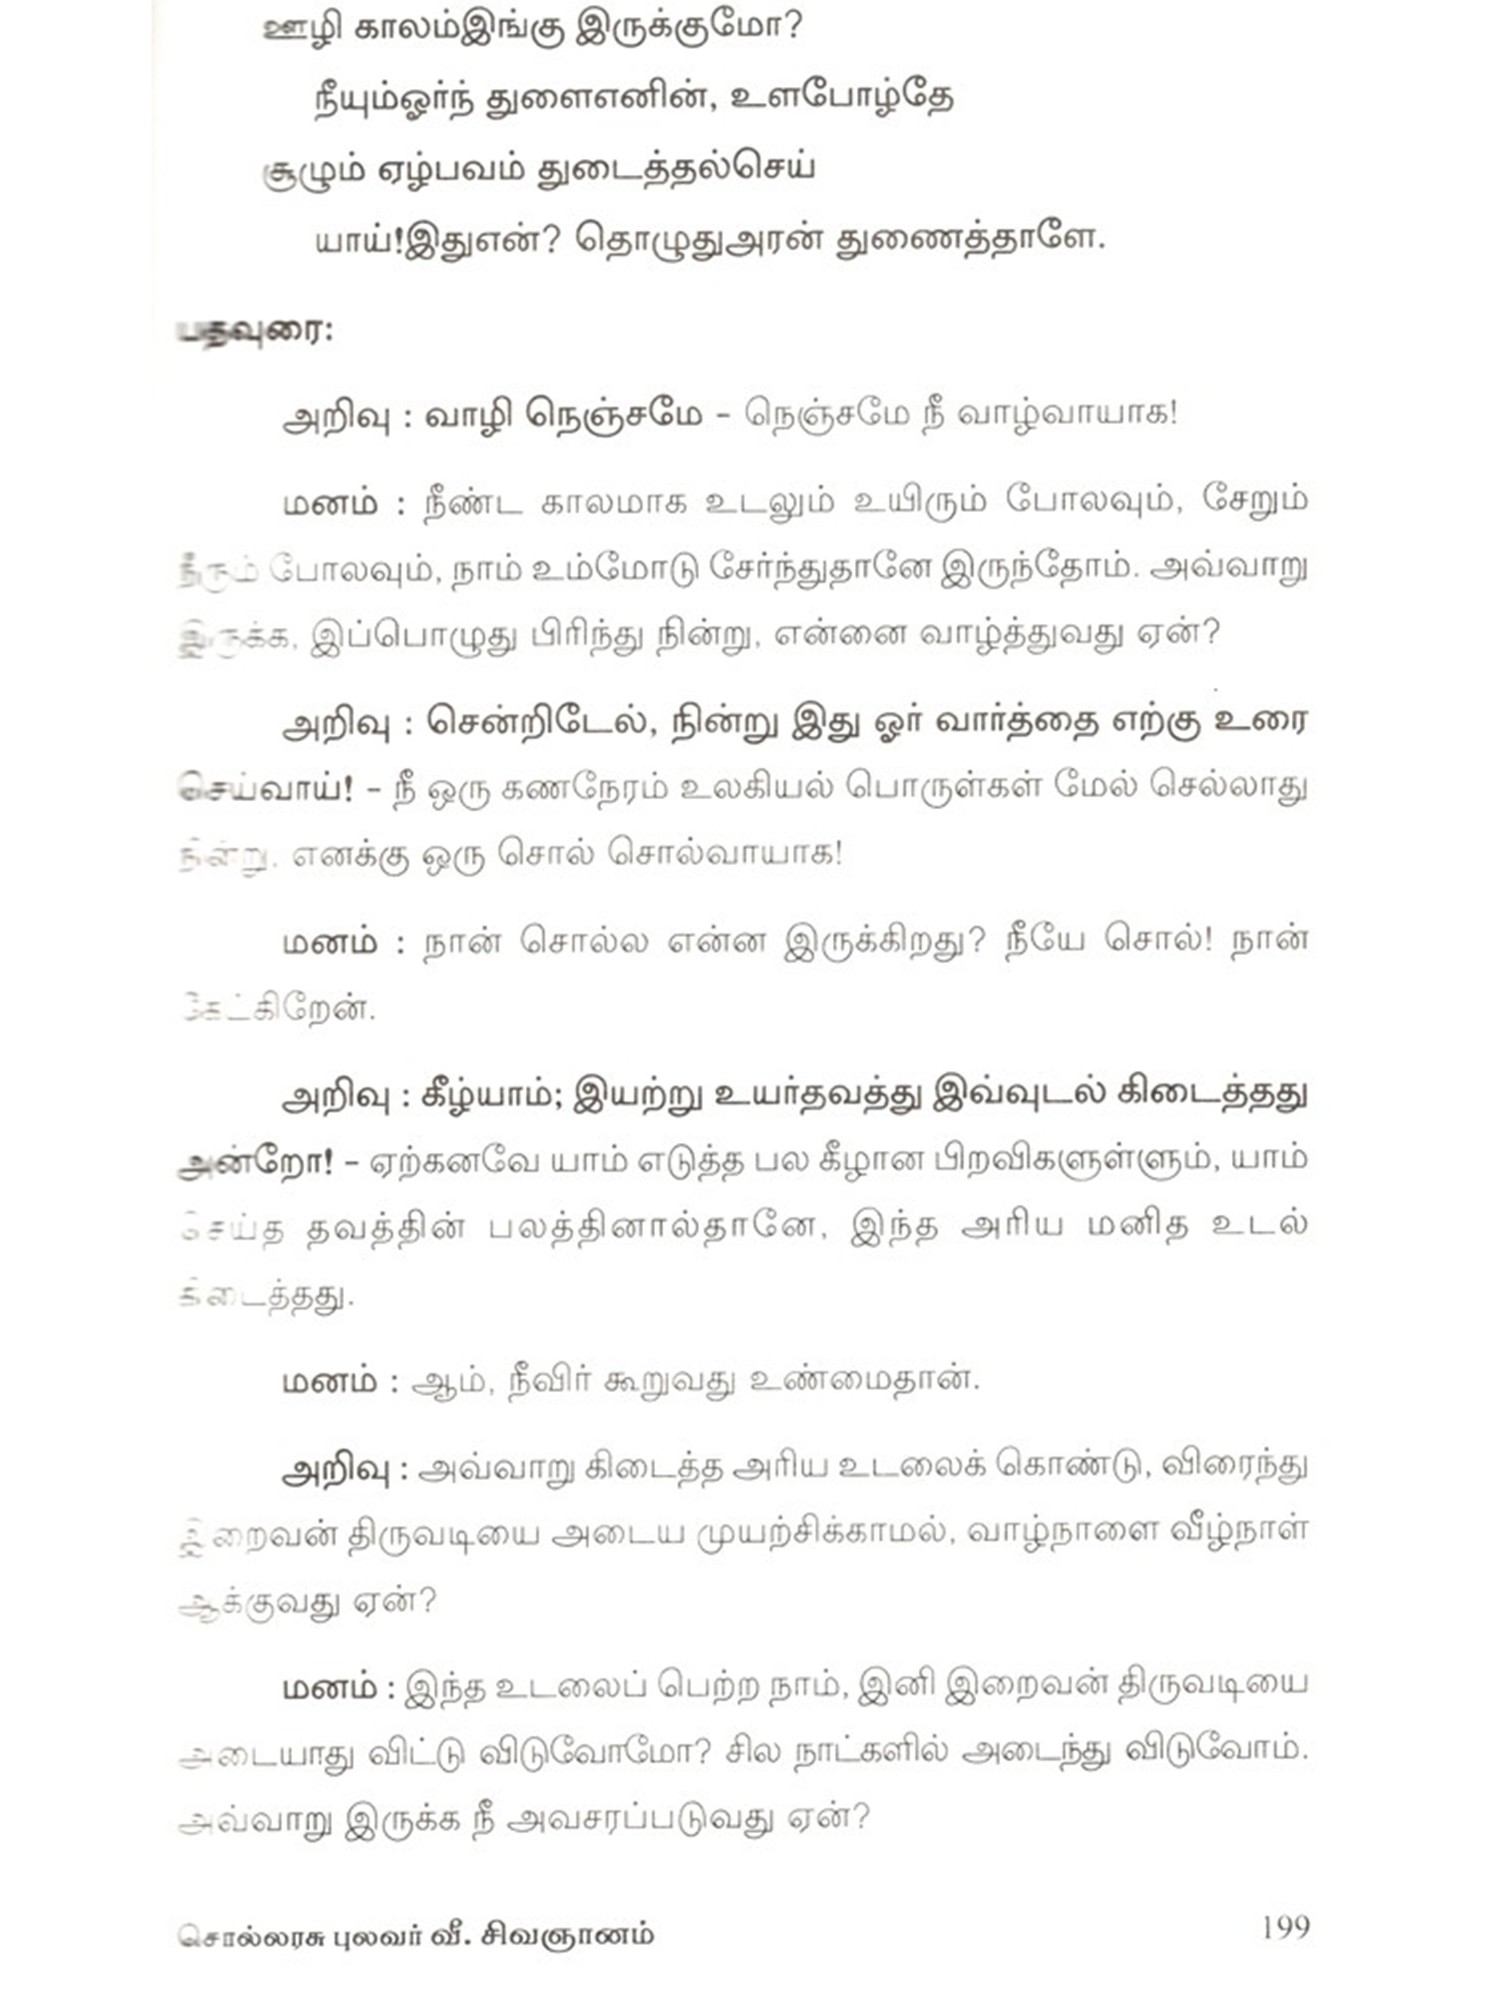 ஊழி காலம்இங்கு இருக்குமோ?
நீயும்ஓர்ந் துளைஎனின், உளபோழ்தே
சூழும் ஏழ்பவம் துடைத்தல்செய்
யாய்!இதுஎன்? தொழுதுஅரன் துணைத்தாளே.
பதவுரை:
அறிவு : வாழி நெஞ்சமே – நெஞ்சமே நீ வாழ்வாயாக!
மனம் : நீண்ட காலமாக உடலும் உயிரும் போலவும், சேறும்
நீரும் போலவும், நாம் உம்மோடு சேர்ந்துதானே இருந்தோம். அவ்வாறு
இருக்க, இப்பொழுது பிரிந்து நின்று, என்னை வாழ்த்துவது ஏன்?
அறிவு : சென்றிடேல், நின்று இது ஓர் வார்த்தை எற்கு உரை
செய்வாய்! – நீ ஒரு கணநேரம் உலகியல் பொருள்கள் மேல் செல்லாது
நின்று, எனக்கு ஒரு சொல் சொல்வாயாக!
மனம் : நான் சொல்ல என்ன இருக்கிறது? நீயே சொல்! நான்
கேட்கிறேன்.
அறிவு : கீழ்யாம்; இயற்று உயர்தவத்து இவ்வுடல் கிடைத்தது
அன்றோ! – ஏற்கனவே யாம் எடுத்த பல கீழான பிறவிகளுள்ளும், யாம்
செய்த தவத்தின் பலத்தினால்தானே, இந்த அரிய மனித உடல்
கிடைத்தது.
மனம் : ஆம், நீவிர் கூறுவது உண்மைதான்.
அறிவு : அவ்வாறு கிடைத்த அரிய உடலைக் கொண்டு, விரைந்து
இறைவன் திருவடியை அடைய முயற்சிக்காமல், வாழ்நாளை வீழ்நாள்
ஆக்குவது ஏன்?
மனம் : இந்த உடலைப் பெற்ற நாம், இனி இறைவன் திருவடியை
அடையாது விட்டு விடுவோமோ? சில நாட்களில் அடைந்து விடுவோம்.
அவ்வாறு இருக்க நீ அவசரப்படுவது ஏன்?
சொல்லரசு புலவர் வீ. சிவஞானம்
199